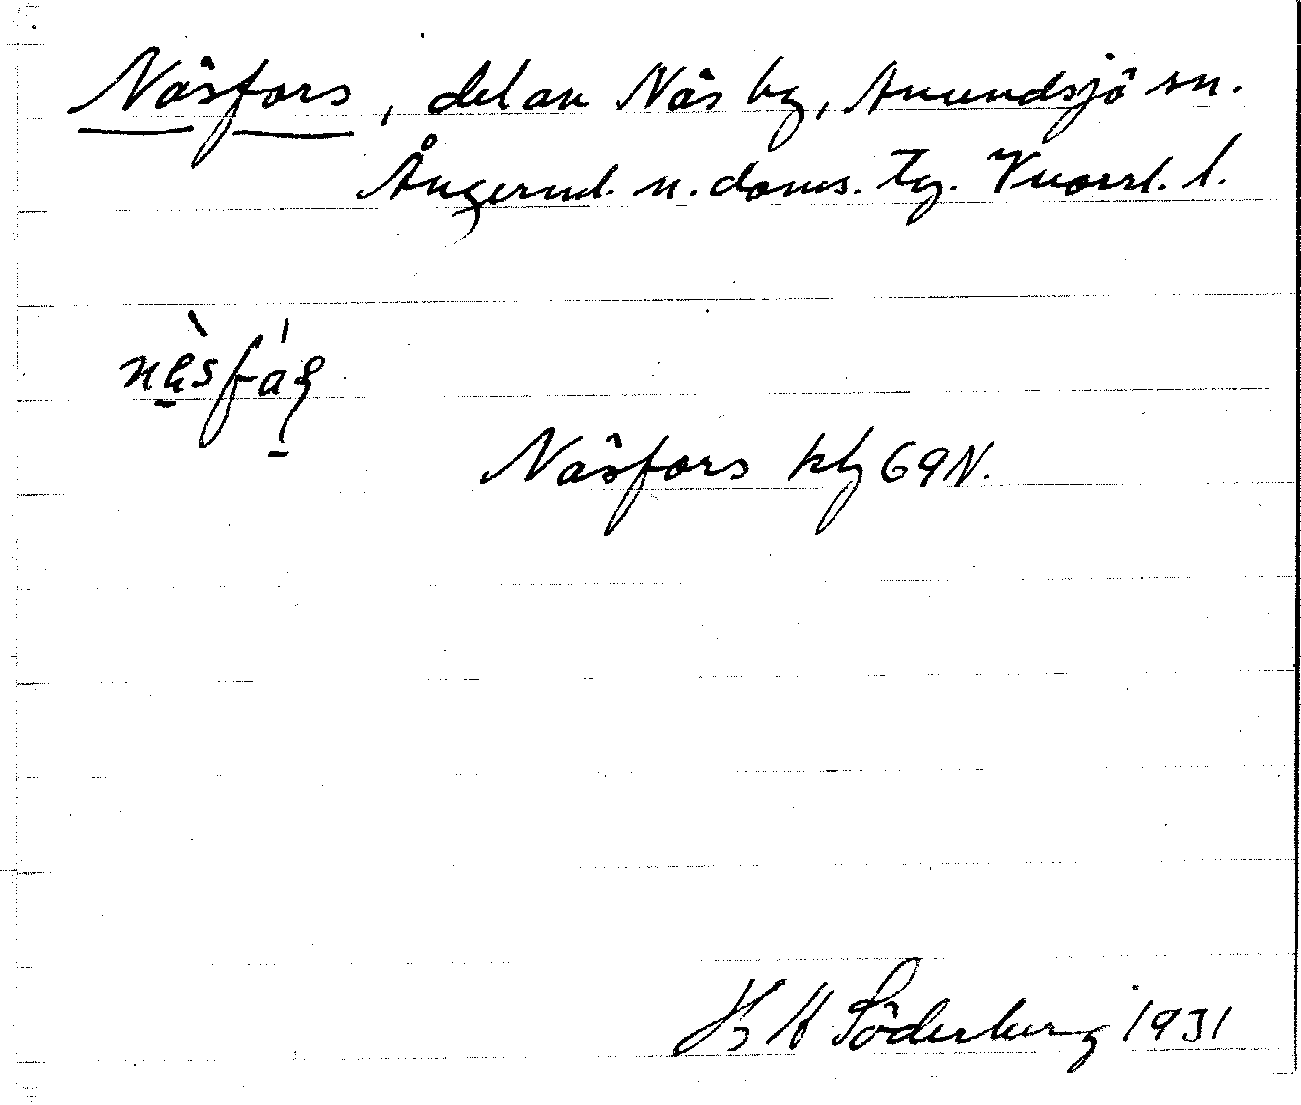 Näsfors, del av Näs by, Anundsjö sn.
Ångerml. n. doms. tg. Vnorrl. l.
Näsfors kbl 69N.
B H Söderberg 1931